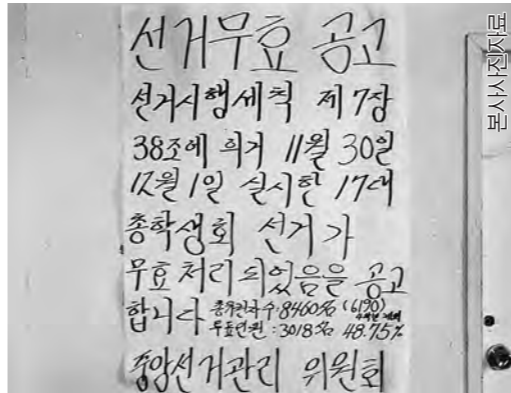 선거무효 공고
선거시행세칙 제7장
38조에 의거 11월 30일
12월 1일 실시한 17대
총학생회 선거가
무효 처리 되었음을 공고
합니다 총유권자수:8460名 (6190)
투표인원:3018名 48.75%
중앙선거관리 위원회
본사사진자료